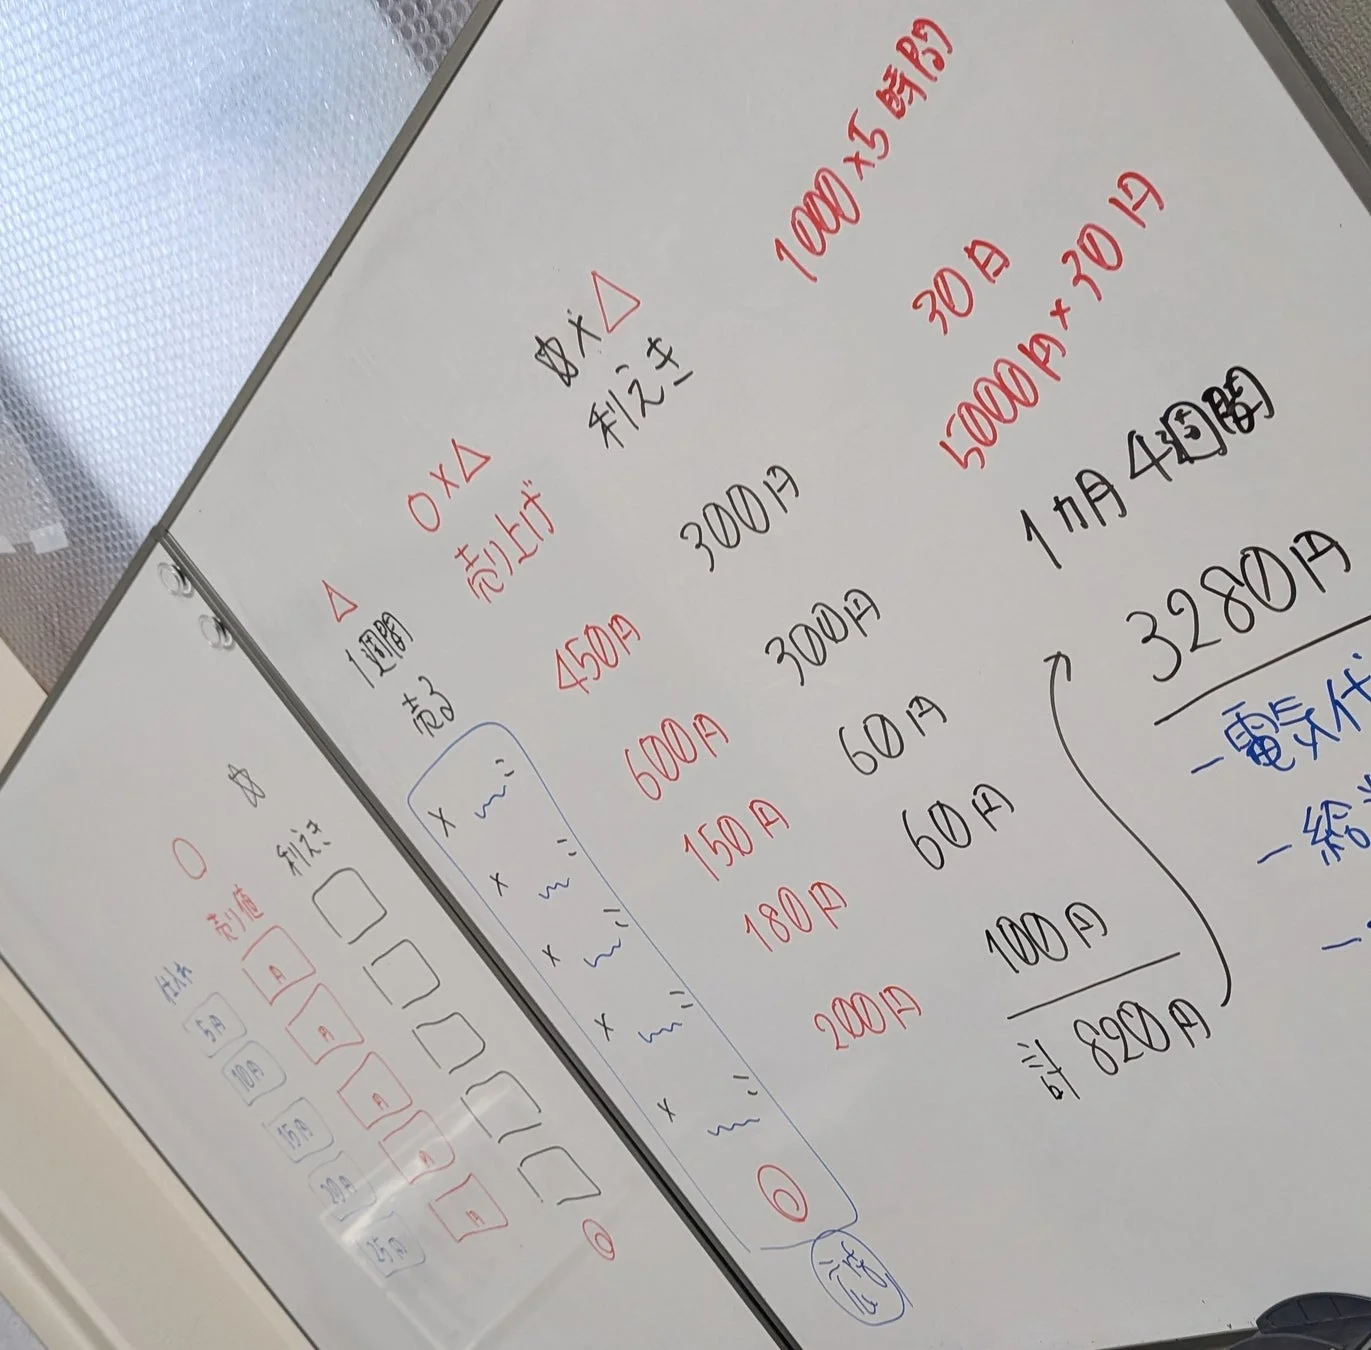 1000×5時間
30日
5000円×30日
1ヵ月4週間
3280円
ー電気代
ー給
☆×△
利えき
300円
300円
60円
60円
100円
計 820円
○×△
売り上げ
450円
600円
150円
180円
200円
△
1週間
売る
×
×
×
×
×
☆
利えき
○
売り値
円
円
円
円
円
5円
10円
15円
20円
25円